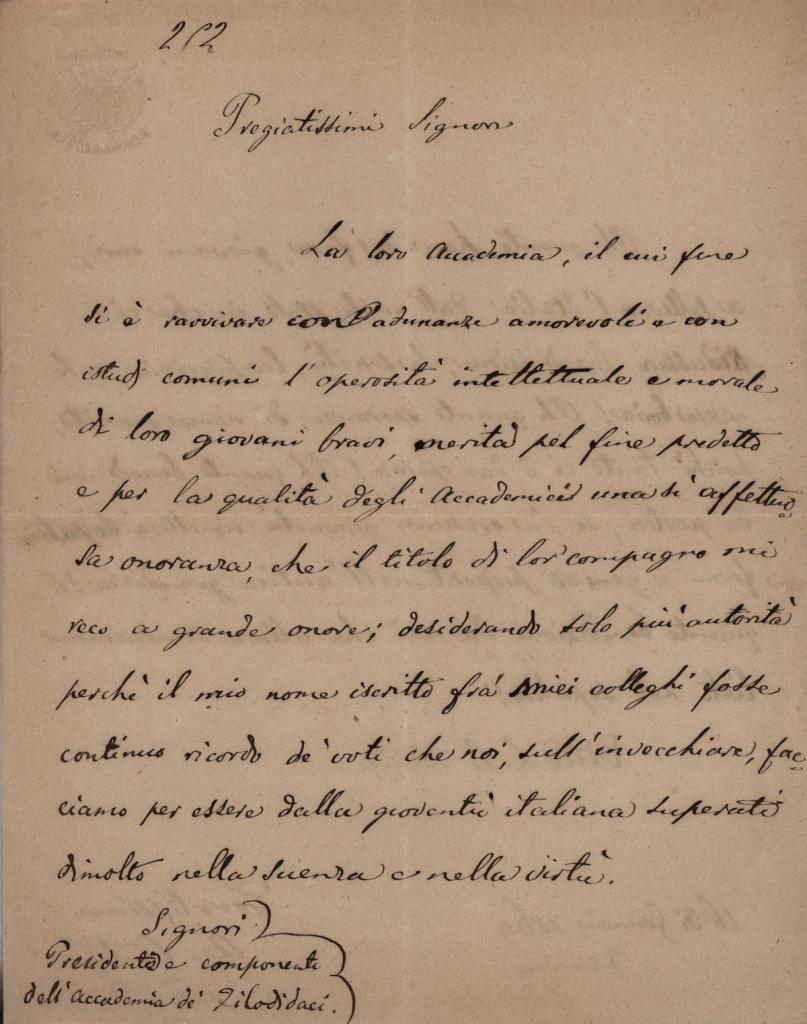 252
Pregiatissimi Signori
La loro Accademia, il cui fine
si è ravvivare con adunanze amorevoli e con
istudj comuni l'operosità intellettuale e morale
di loro giovani bravi, merita pel fine predetto
e per la qualità degli Accademici una sì affettuo
sa onoranza, che il titolo di lor compagno mi
reco a grande onore; desiderando solo più autorità
perchè il mio nome iscritto fra' miei colleghi fosse
continuo ricordo de' voti che noi, sull'invecchiare, fac-
ciamo per essere dalla gioventù italiana superati
dimolto nella scienza e nella virtù.
Signori
Presidente e componenti
dell'Accademia de' Filodidaci.